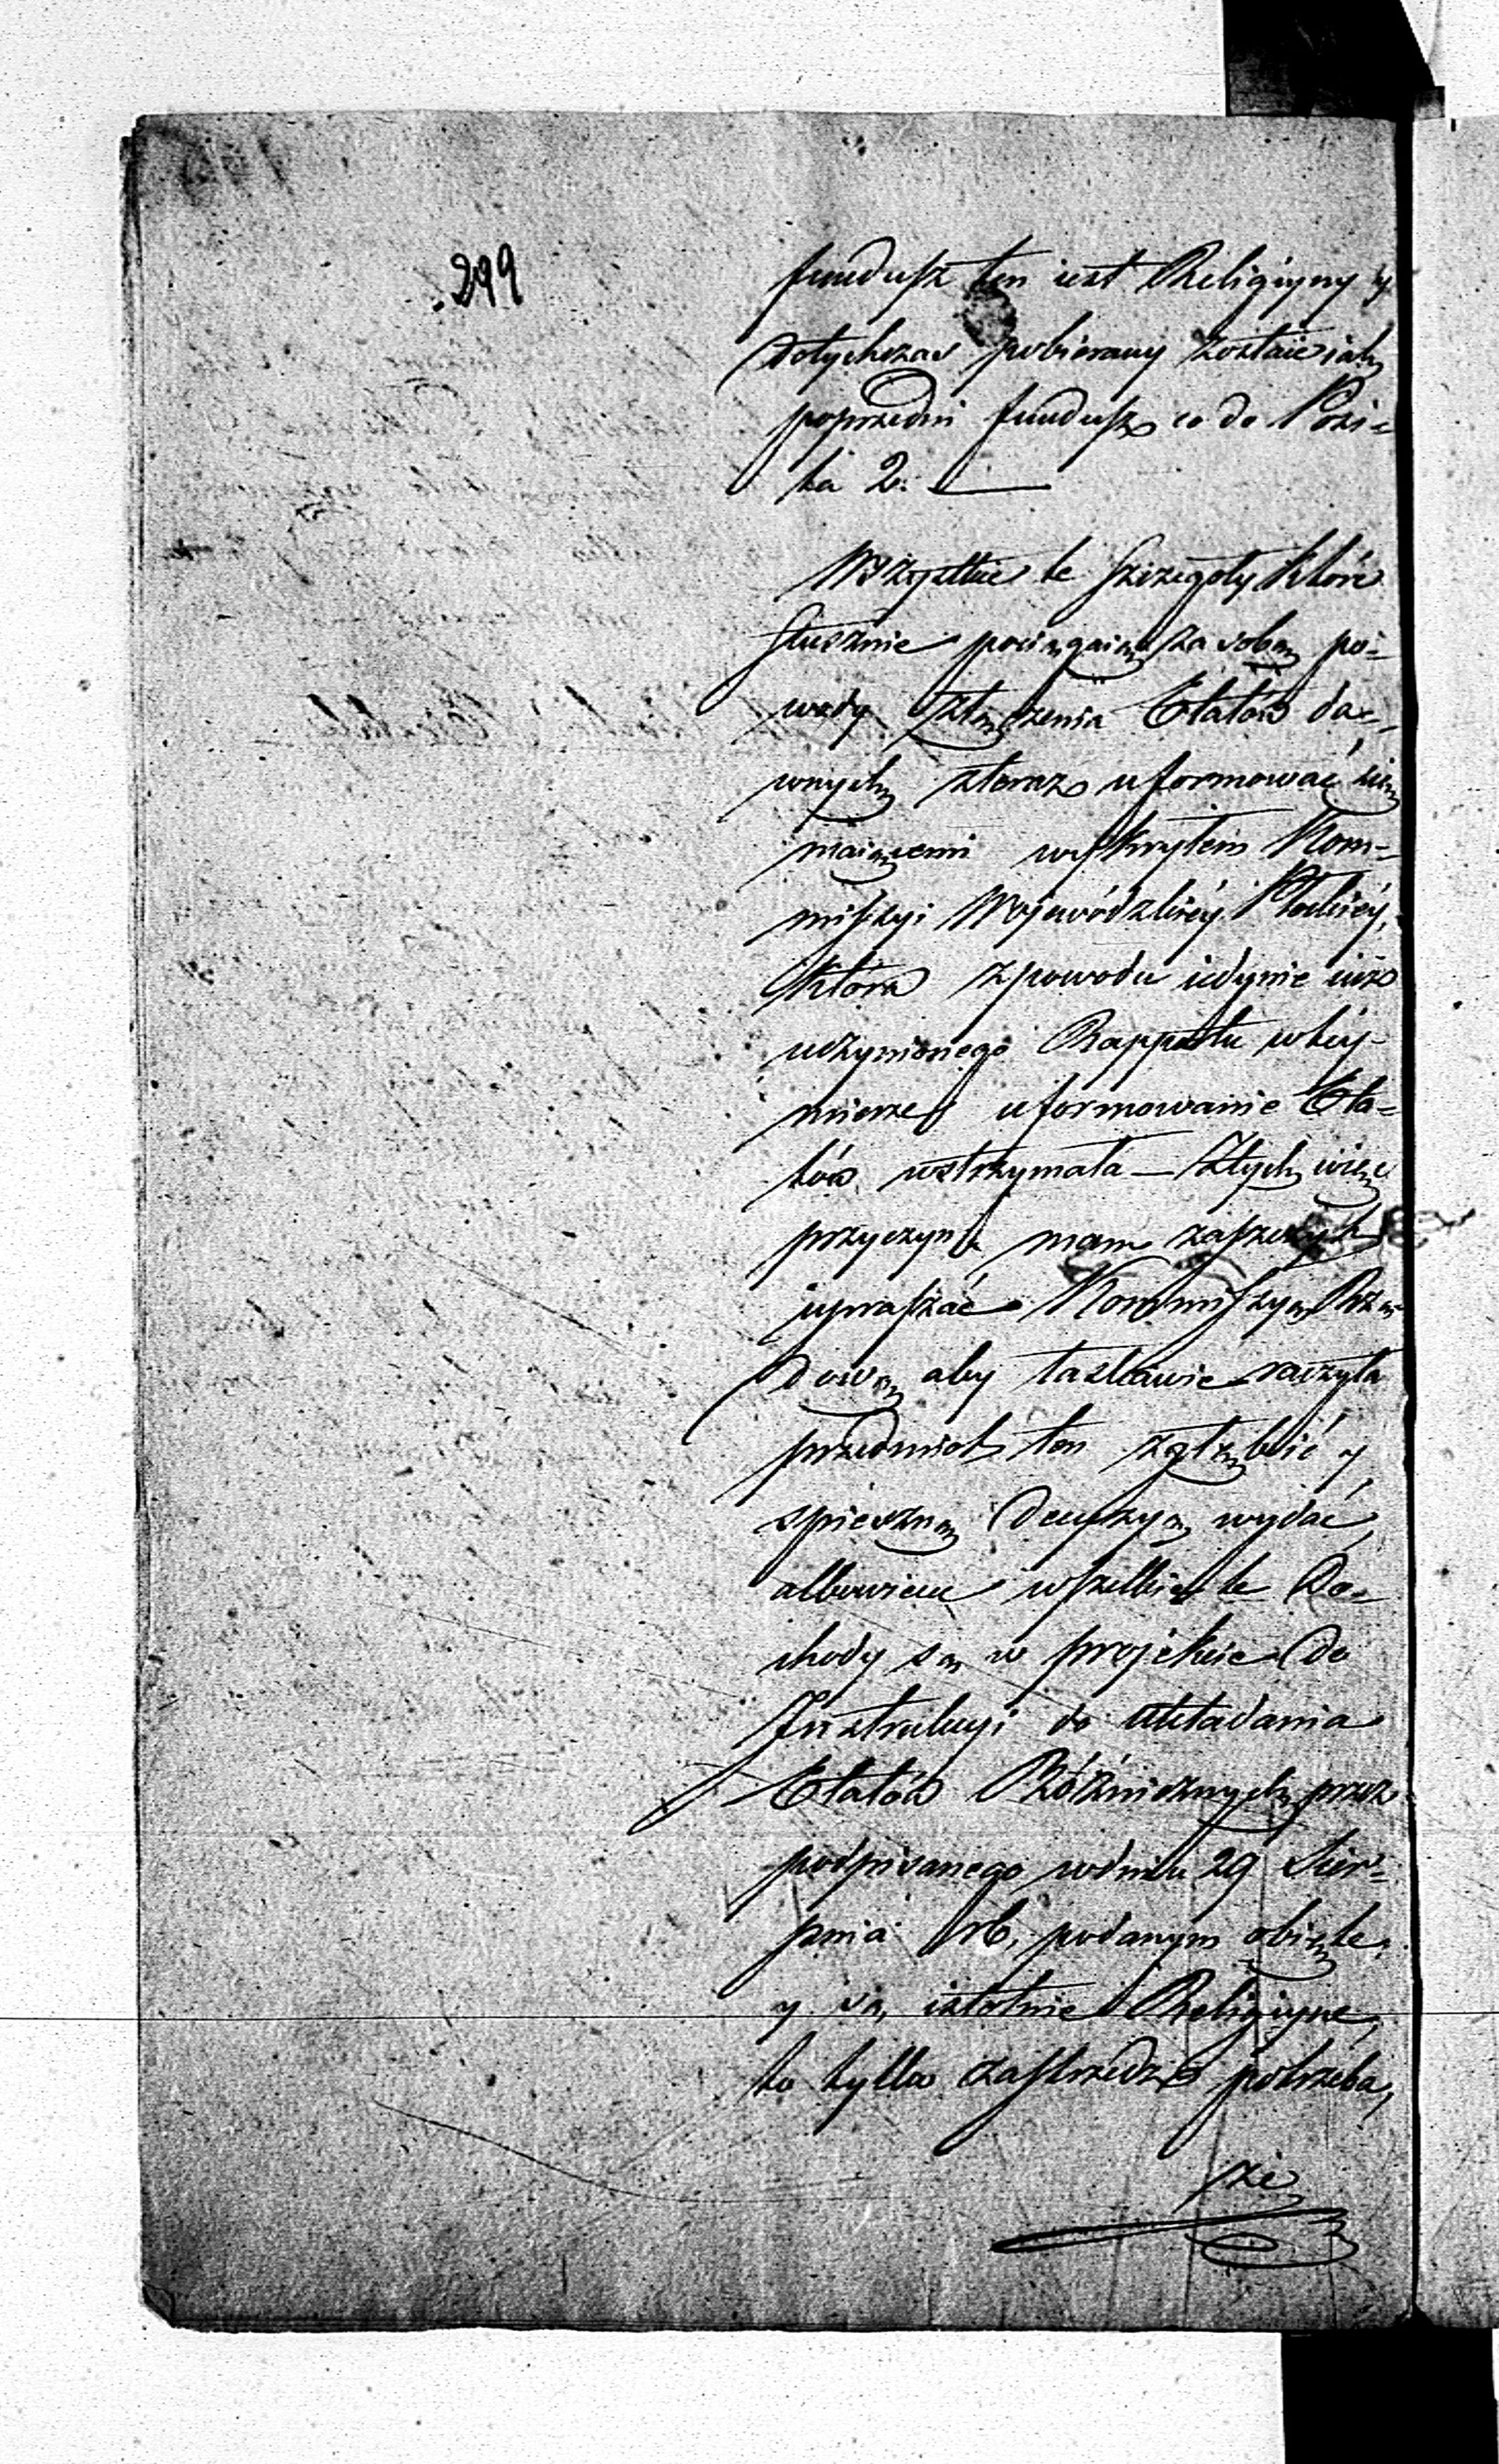 299
fundusz ten iest Religiyny y
dotychczas pobierany zostaie iak
poprzedni fundusz co do Pozi-
ta 2.
Wszystkie te szczegoły które
słusznie pociągaią za sobą po-
wody złączenia Etatów da-
wnych z teraz uformować się
maiącemi w
missyi Wojewódzkiéy Płockiéy,
która z powodu iedynie iuż
uczynionego Rapportu w téy
mierze uformowanie Eta-
tów wstrzymała — Z tych więc
przyczyn mam zaszczyt
upraszać Kommissyą Rzą-
dową aby łaskawie raczyła
przedmiot ten zgłębić y
spieszną decyzyą wydać,
albowiem wszelkie te Do-
chody są w projekcie do
Instrukcyi do układania
Etatów Różnicznych przez
podpisanego w dniu 29 Sier-
pnia rb. podanym obięte
y są istotnie Religiyne,
to tylko zastrzedz potrzeba,
że